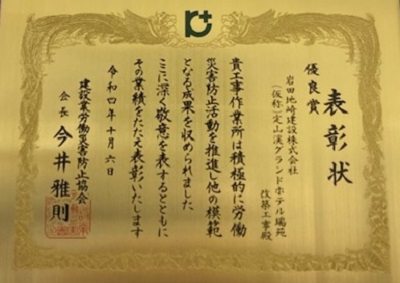 表彰状
優良賞
岩田地崎建設株式会社
(仮称)定山渓グランドホテル瑞苑
改築工事殿
貴工事作業所は積極的に労働
災害防止活動を推進し他の模範
となる成果を収められました
ここに深く敬意を表するとともに
その業績をたたえ表彰いたします
令和四年十月六日
建設業労働災害防止協会
会長 今井雅則